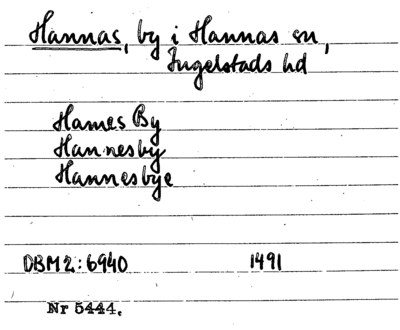 Hannas, by i Hannas sn,
Ingelstads hd
Hames By
Hannesby
Hannesbye
DBM2:6940 1491
Nr 5444.